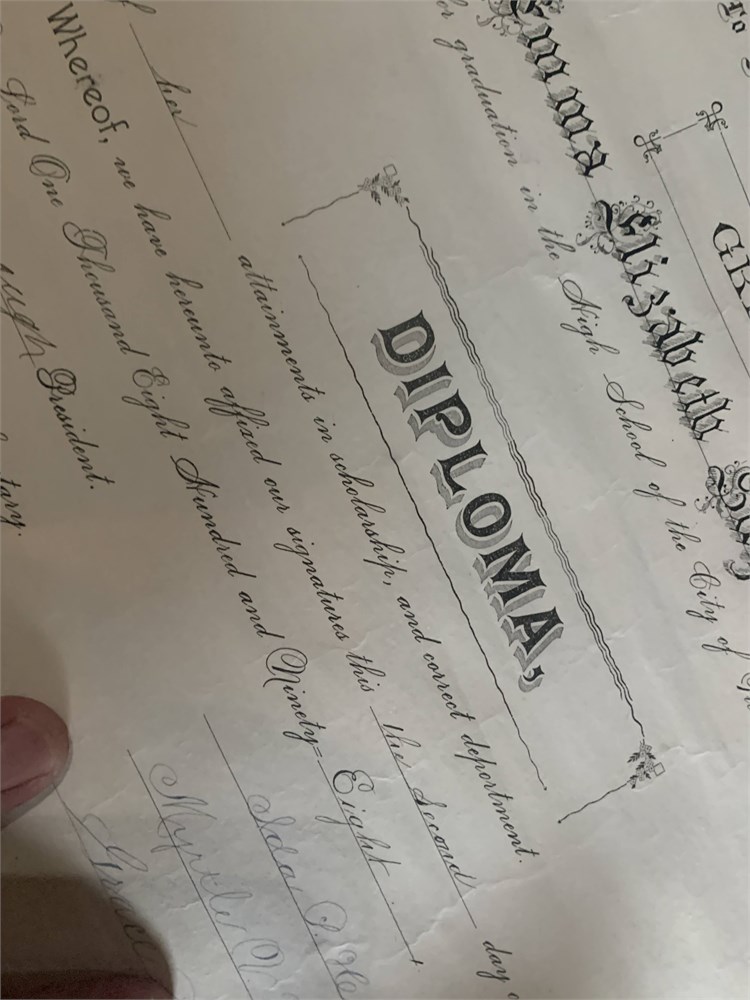 To
GR
Emma Elizabeth
for graduation in the High School of the City of
DIPLOMA,
her attainments in scholarship, and correct deportment.
Whereof, we have hereunto affixed our signatures this the Second day
Lord One Thousand Eight Hundred and Ninety- Eight
President.
Ida
Myrtle
tary.
Grace